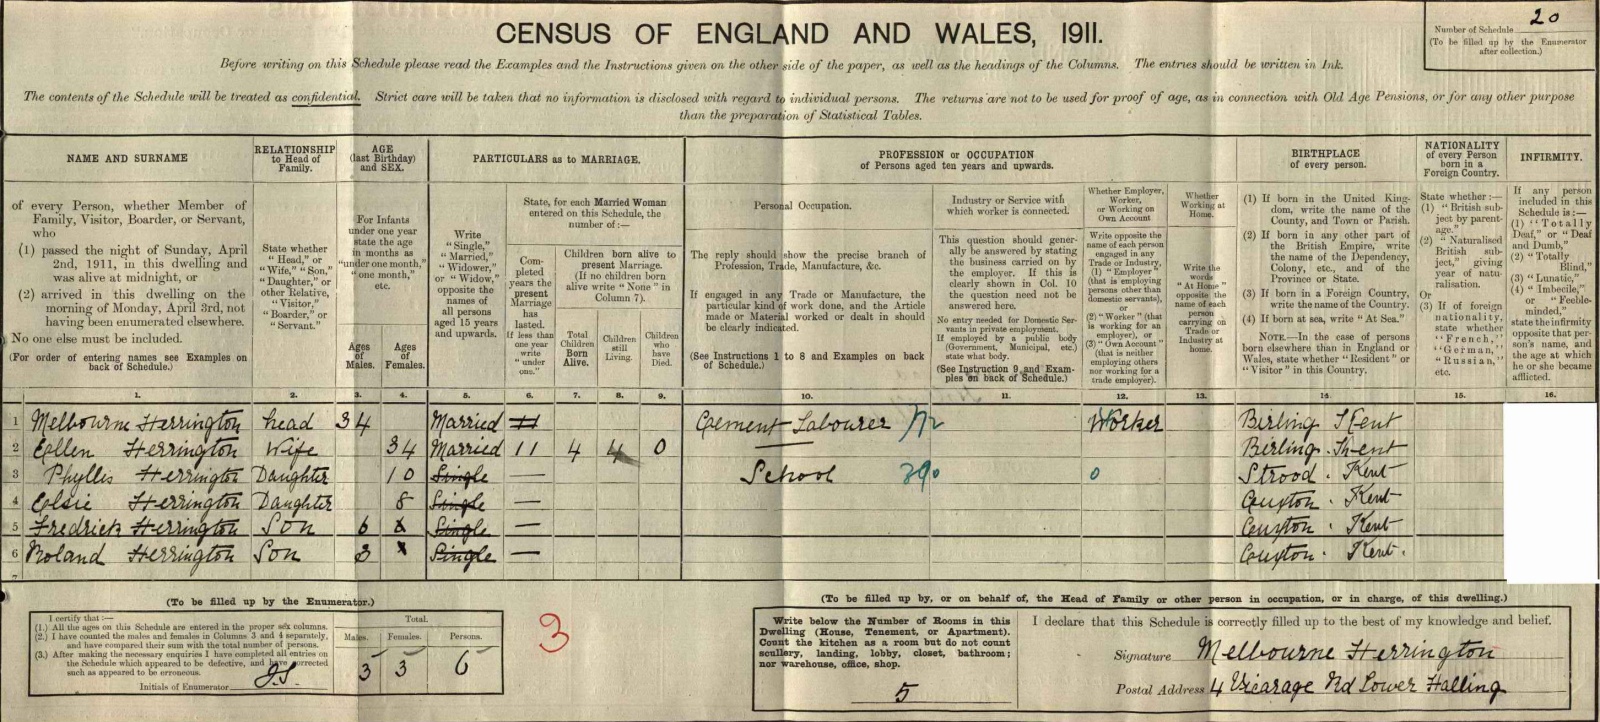 CENSUS OF ENGLAND AND WALES, 1911.
Number of Schedule 20
(To be filled up by the Enumerator
after collection.)
Before writing on this Schedule please read the Examples and the Instructions given on the other side of the paper, as well as the headings of the Columns. The entries should be written in Ink.
The contents of the Schedule will be treated as confidential. Strict care will be taken that no information is disclosed with regard to individual persons. The returns are not to be used for proof of age, as in connection with Old Age Pensions, or for any other purpose
than the preparation of Statistical Tables.
NAME AND SURNAME
of every Person, whether Member of
Family, Visitor, Boarder, or Servant,
who
(1) passed the night of Sunday, April
2nd, 1911, in this dwelling and
was alive at midnight, or
(2) arrived in this dwelling on the
morning of Monday, April 3rd, not
having been enumerated elsewhere.
No one else must be included.
(For order of entering names see Examples on
back of Schedule.)
RELATIONSHIP
to Head of
Family.
State whether
"Head," or
"Wife," "Son,"
"Daughter," or
other Relative,
"Visitor,"
"Boarder," or
"Servant."
AGE
(last Birthday)
and SEX.
For Infants
under one year
state the age
in months as
"under one month,"
"one month,"
etc.
Ages
of
Males.
Ages
of
Females.
PARTICULARS as to MARRIAGE.
Write
"Single,"
"Married,"
"Widower,"
or "Widow,"
opposite the
names of
all persons
aged 15 years
and upwards.
State, for each Married Woman
entered on this Schedule, the
number of:—
Com-
pleted
years the
present
Marriage
has
lasted.
If less than
one year
write
"under
one."
Children born alive to
present Marriage.
(If no children born
alive write "None" in
Column 7).
Total
Children
Born
Alive.
Children
still
Living.
Children
who
have
Died.
PROFESSION or OCCUPATION
of Persons aged ten years and upwards.
Personal Occupation.
The reply should show the precise branch of
Profession, Trade, Manufacture, &c.
If engaged in any Trade or Manufacture, the
particular kind of work done, and the Article
made or Material worked or dealt in should
be clearly indicated.
(See Instructions 1 to 8 and Examples on back
of Schedule.)
Industry or Service with
which worker is connected.
This question should gener-
ally be answered by stating
the business carried on by
the employer. If this is
clearly shown in Col. 10
the question need not be
answered here.
No entry needed for Domestic Ser-
vants in private employment.
If employed by a public body
(Government, Municipal, etc.)
state what body.
(See Instruction 9 and Exam-
ples on back of Schedule.)
Whether Employer,
Worker,
or Working on
Own Account
Write opposite the
name of each person
engaged in any
Trade or Industry,
(1) "Employer"
(that is employing
persons other than
domestic servants),
or
(2) "Worker" (that
is working for an
employer), or
(3) "Own Account"
(that is neither
employing others
nor working for a
trade employer).
Whether
Working at
Home.
Write the
words
"At Home"
opposite the
name of each
person
carrying on
Trade or
Industry at
home.
BIRTHPLACE
of every person.
(1) If born in the United King-
dom, write the name of the
County, and Town or Parish.
(2) If born in any other part of
the British Empire, write
the name of the Dependency,
Colony, etc., and of the
Province or State.
(3) If born in a Foreign Country,
write the name of the Country.
(4) If born at sea, write "At Sea."
NOTE.—In the case of persons
born elsewhere than in England or
Wales, state whether "Resident" or
"Visitor" in this Country.
NATIONALITY
of every Person
born in a
Foreign Country.
State whether:—
(1) "British sub-
ject by parent-
age."
(2) "Naturalised
British sub-
ject," giving
year of natu-
ralisation.
Or
(3) If of foreign
nationality,
state whether
"French,"
"German,"
"Russian,"
etc.
INFIRMITY.
If any person
included in this
Schedule is:—
(1) "Totally
Deaf," or "Deaf
and Dumb,"
(2) "Totally
Blind,"
(3) "Lunatic,"
(4) "Imbecile,"
or "Feeble-
minded,"
state the infirmity
opposite that per-
son's name, and
the age at which
he or she became
afflicted.
1. 2. 3. 4. 5. 6. 7. 8. 9. 10. 11. 12. 13. 14. 15. 16.
1 Melbourne Herrington head 34 Married Cement Labourer Worker Birling Kent
2 Ellen Herrington Wife 34 Married 11 4 4 0 Birling. Kent
3 Phyllis Herrington Daughter 10 Single — School 390 0 Strood. Kent
4 Elsie Herrington Daughter 8 Single — Cuxton. Kent
5 Fredrick Herrington Son 6 Single — Cuxton. Kent
6 Roland Herrington Son 3 Single — Cuxton. Kent.
7
(To be filled up by the Enumerator.)
I certify that:—
(1.) All the ages on this Schedule are entered in the proper sex columns.
(2.) I have counted the males and females in Columns 3 and 4 separately,
and have compared their sum with the total number of persons.
(3.) After making the necessary enquiries I have completed all entries on
the Schedule which appeared to be defective, and have corrected
such as appeared to be erroneous.
Initials of Enumerator
Total.
Males. Females. Persons.
3 3 6
3
(To be filled up by, or on behalf of, the Head of Family or other person in occupation, or in charge, of this dwelling.)
Write below the Number of Rooms in this
Dwelling (House, Tenement, or Apartment).
Count the kitchen as a room but do not count
scullery, landing, lobby, closet, bathroom;
nor warehouse, office, shop.
5
I declare that this Schedule is correctly filled up to the best of my knowledge and belief.
Signature Melbourne Herrington
Postal Address 4 Vicarage Rd Lower Halling